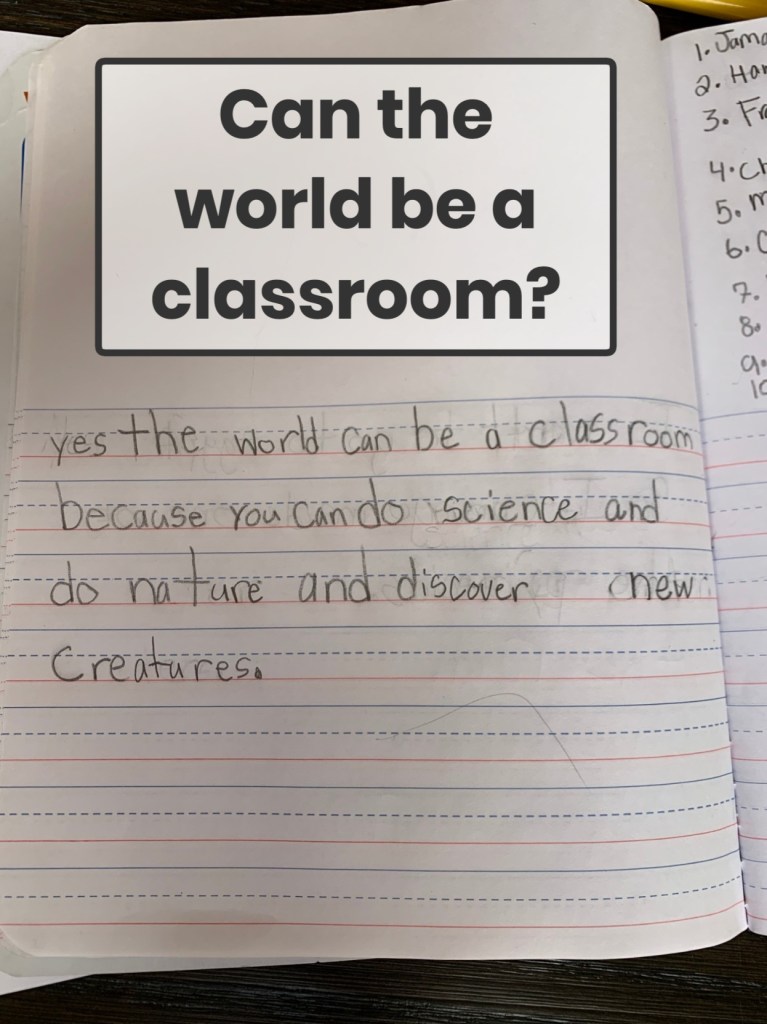 Can the
world be a
classroom?
yes the world can be a classroom
because you can do science and
do nature and discover new
Creatures.
1.
2.
3.
4.
5.
6.
7.
8.
9.
10